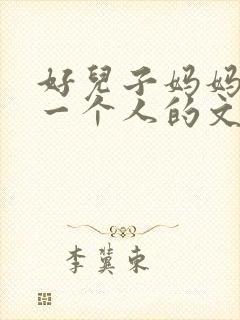 好兒子妈妈
一个人的文
李冀东